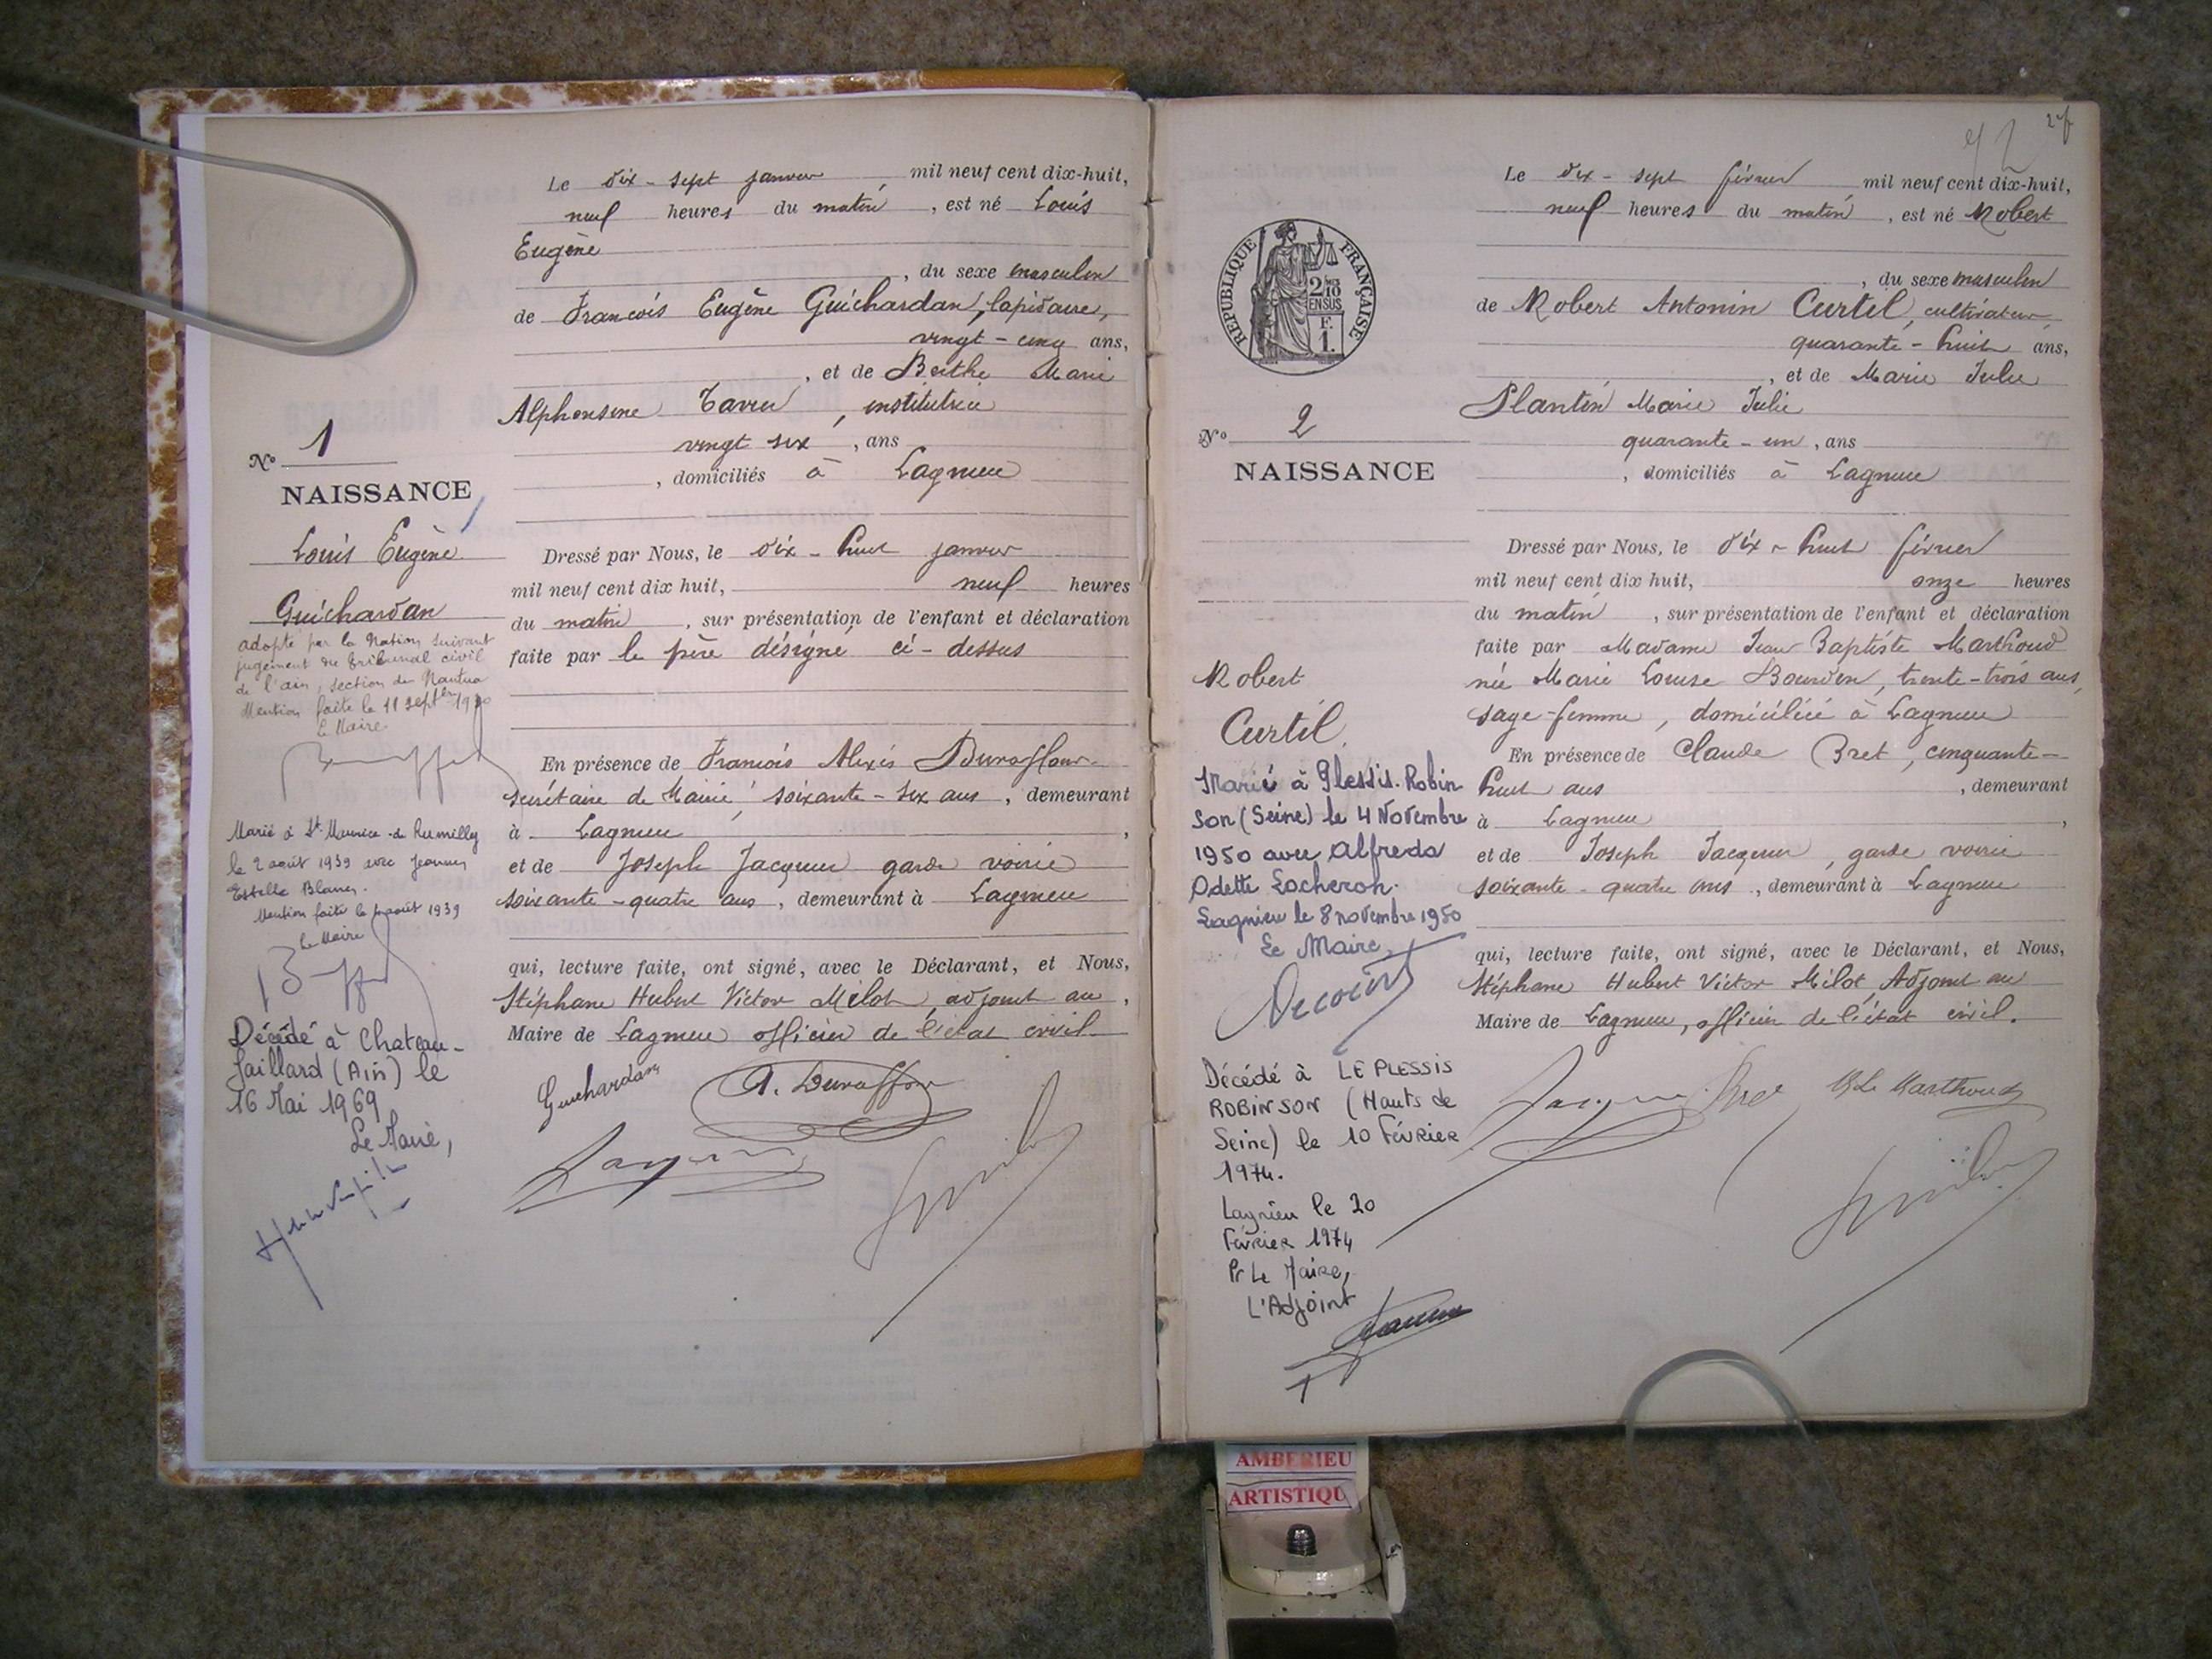 Le dix-sept janvier, mil neuf cent dix-huit,
neuf heures du matin, est né Louis
Eugène
, du sexe masculin
de François Eugène Guichardan, lapidaire,
vingt-cinq ans,
, et de Berthe Marie
Alphonsine, institutrice
vingt six, ans
, domiciliés à Lagnieu
Nº 1
NAISSANCE
Louis Eugène
Guichardan
adopté par la Nation suivant
jugement du tribunal civil
de l'ain, section de Nantua
Mention faite le 11 septbre
Le Maire
Marié à St Maurice de Rumilly
le 2 août 1939 avec Jeanne
Estelle Blanc.
Mention faite le août 1939
Le Maire
Décédé à Chateau-
Gaillard (Ain) le
16 Mai 1969
Le Maire,
Dressé par Nous, le dix-huit janvier
mil neuf cent dix huit, neuf heures
du matin, sur présentation de l'enfant et déclaration
faite par le père désigné ci-dessus
En présence de François Alexis Duraffour
secrétaire de Mairie, soixante-six ans, demeurant
à Lagnieu,
et de Joseph Jacquier garde voirie
soixante-quatre ans, demeurant à Lagnieu
qui, lecture faite, ont signé, avec le Déclarant, et Nous,
Stéphane Hubert Victor Milot, adjoint au,
Maire de Lagnieu officier de l'état civil
Guichardan
A. Duraffour
Jacquier
2
Le dix-sept février, mil neuf cent dix-huit,
neuf heures du matin, est né Robert
, du sexe masculin
de Robert Antonin Curtil, cultivateur,
quarante-huit ans,
, et de Marie Julie
Plantin Marie Julie
quarante-un, ans
, domiciliés à Lagnieu
REPUBLIQUE FRANÇAISE
2/10
EN SUS
F.
1.
Nº 2
NAISSANCE
Robert
Curtil.
Marié à Plessis-Robin
son (Seine) le 4 Novembre
1950 avec Alfreda
Odette Locheron.
Lagnieu le 8 novembre 1950
Le Maire
Décédé à LE PLESSIS
ROBINSON (Hauts de
Seine) le 10 FÉVRIER
1974.
Lagnieu le 20
FÉVRIER 1974
Pr Le Maire,
L'Adjoint
Dressé par Nous, le dix-huit février
mil neuf cent dix huit, onze heures
du matin, sur présentation de l'enfant et déclaration
faite par Madame Jean Baptiste Marthoud
née Marie Louise Bourdin, trente-trois ans,
sage-femme, domiciliée à Lagnieu
En présence de Claude Bret, cinquante-
huit ans, demeurant
à Lagnieu,
et de Joseph Jacquier, garde voirie
soixante-quatre ans, demeurant à Lagnieu
qui, lecture faite, ont signé, avec le Déclarant, et Nous,
Stéphane Hubert Victor Milot, Adjoint au
Maire de Lagnieu, officier de l'état civil.
Jacquier Bret Marthoud
AMBERIEU
ARTISTIQU